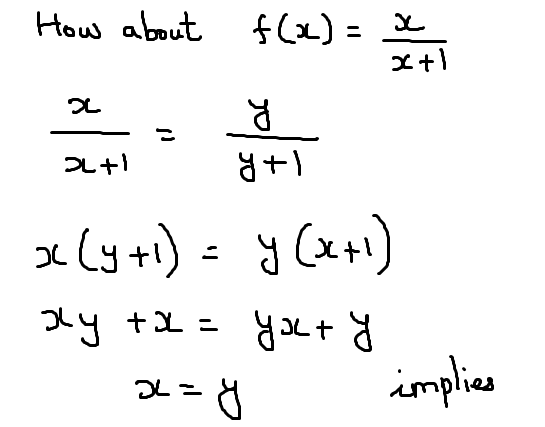 How about f(x) = x/(x+1)
x/(x+1) = y/(y+1)
x(y+1) = y(x+1)
xy + x = yx + y
x = y implies